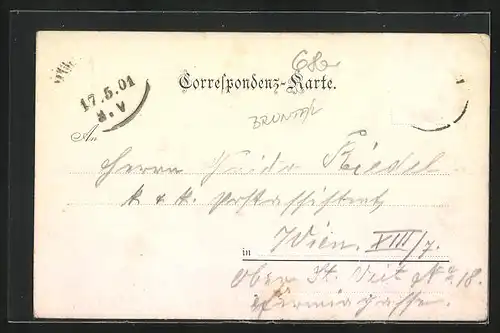 68
17.5.01
8.V
Correspondenz-Karte.
An
Herrn Guido Riedel
k & k. Postassistent
in Wien. XIII/7.
Ober St. Veit No. 18.